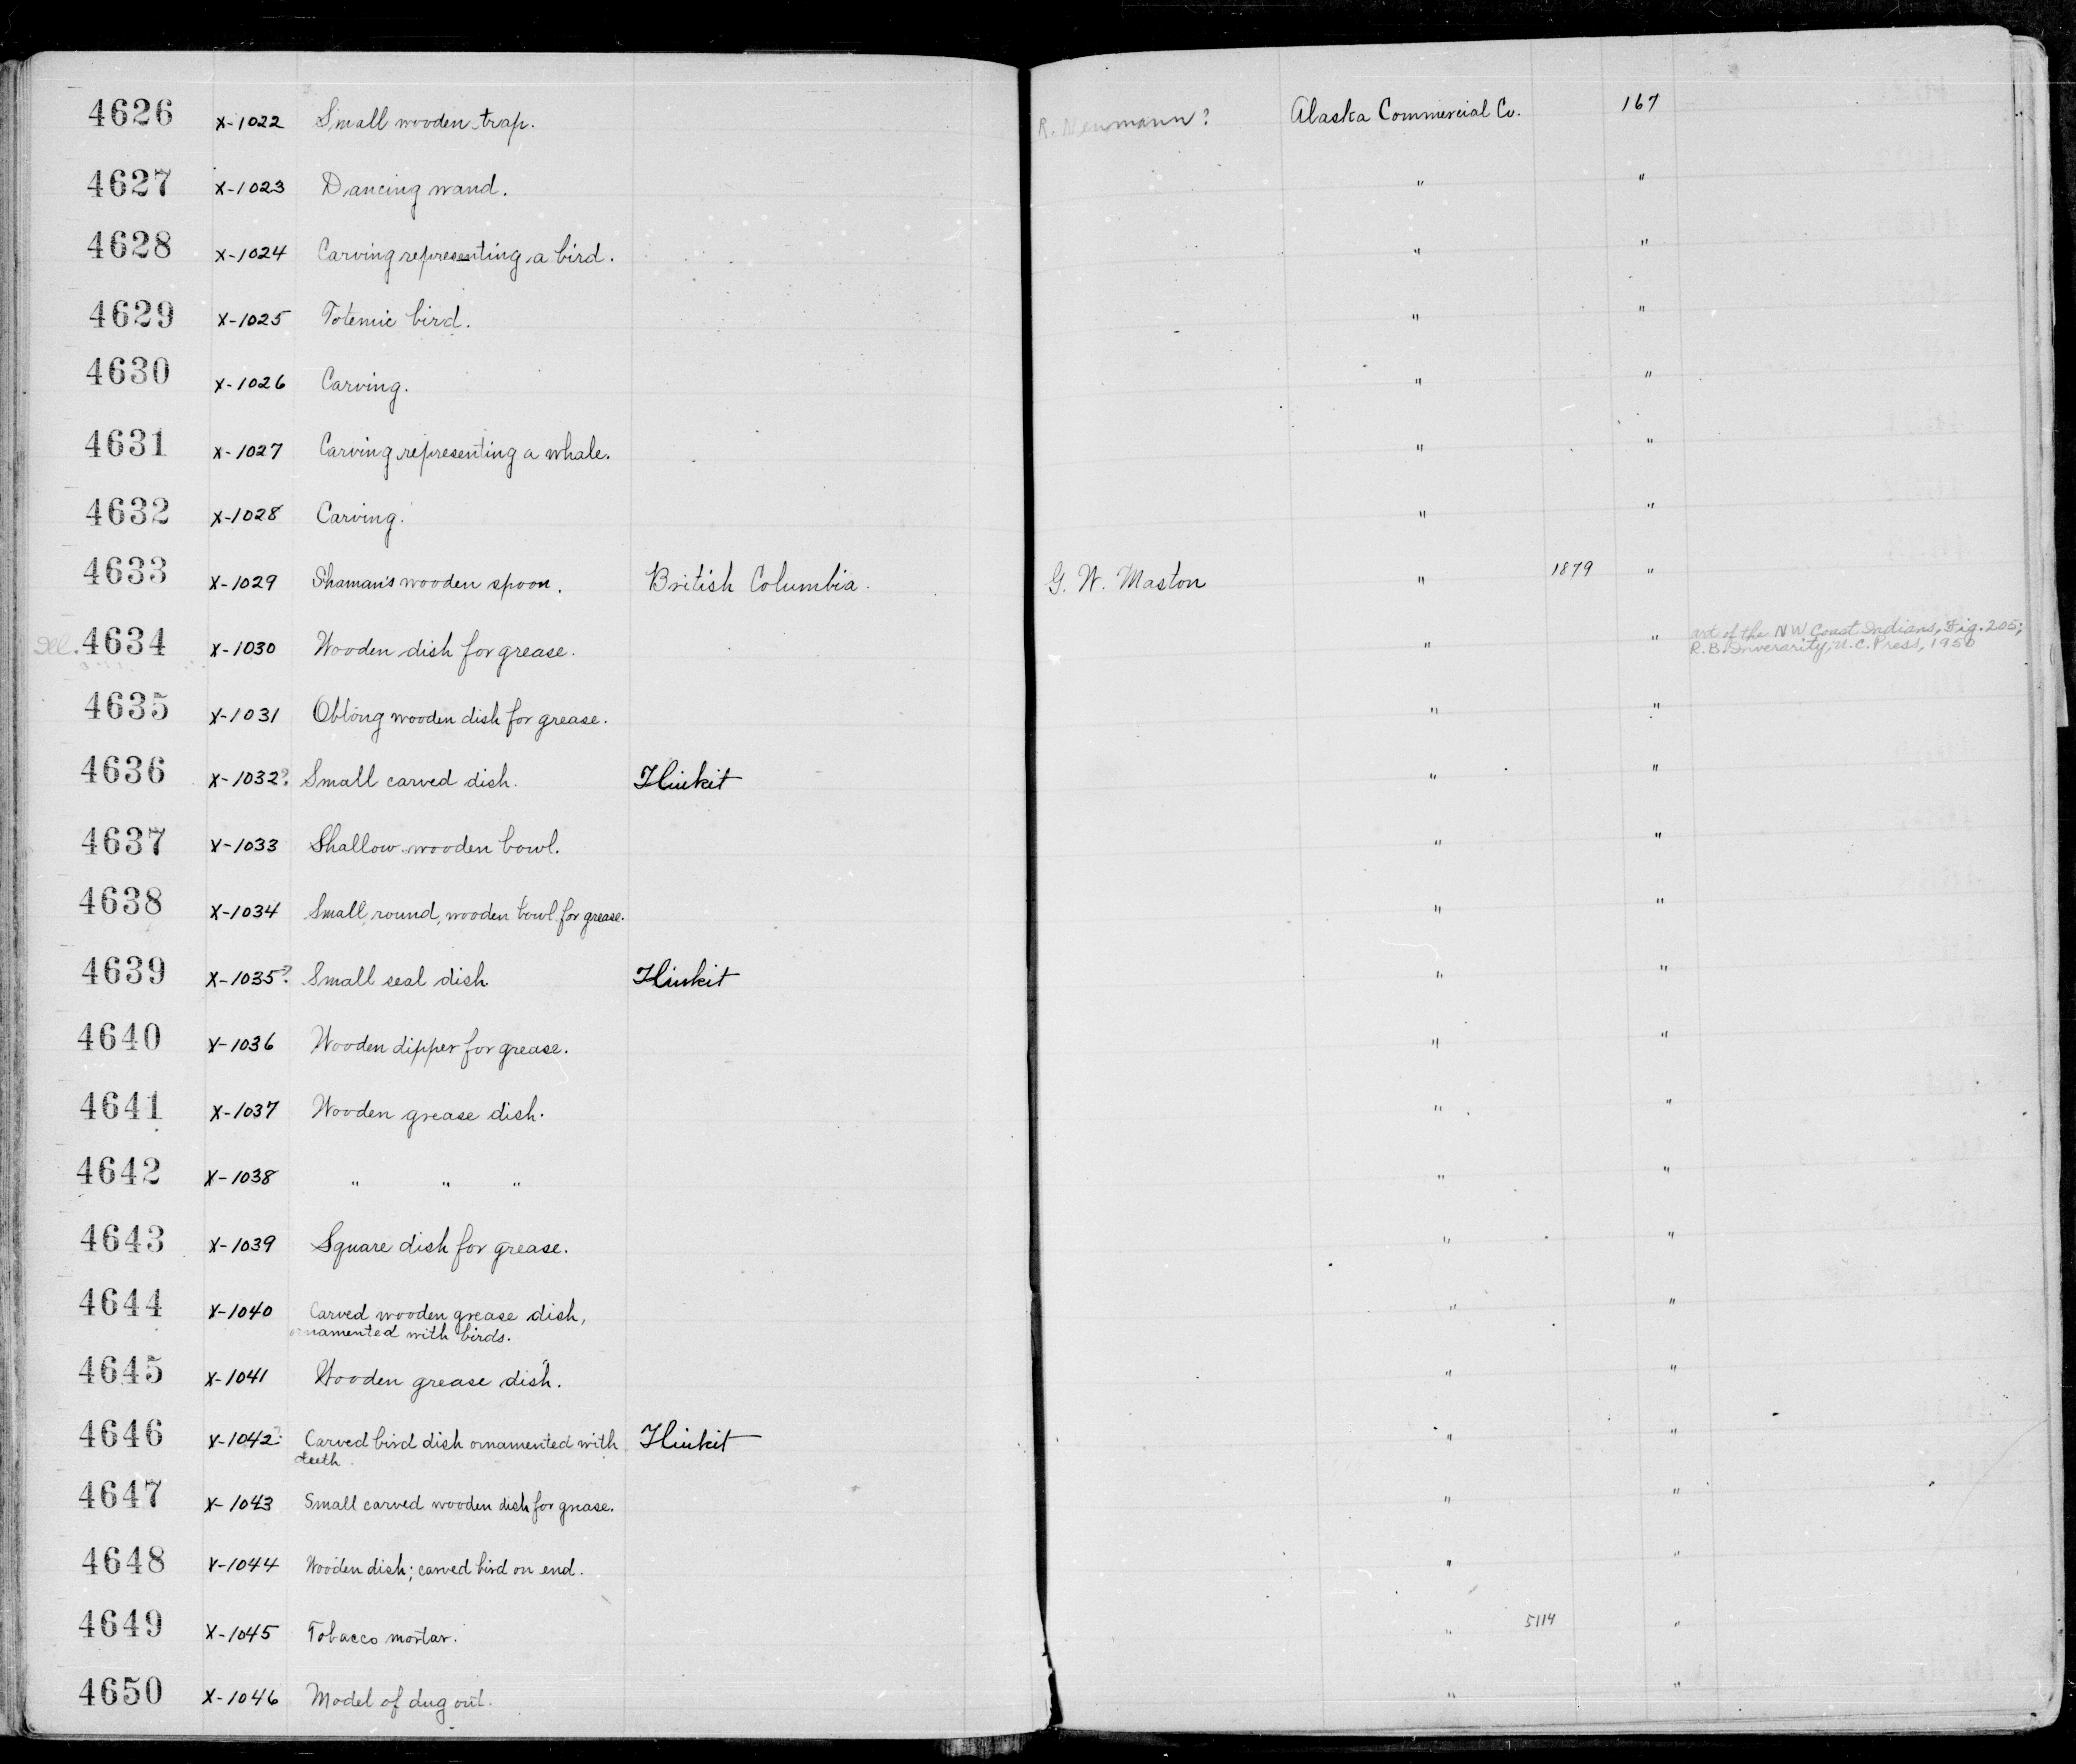 4626 X-1022 Small wooden trap. R. Neumann? Alaska Commercial Co. 167
4627 X-1023 Dancing wand. " "
4628 X-1024 Carving representing a bird. " "
4629 X-1025 Totemic bird. " "
4630 X-1026 Carving. " "
4631 X-1027 Carving representing a whale. " "
4632 X-1028 Carving. " "
4633 X-1029 Shaman's wooden spoon. British Columbia. G. W. Maston " 1879 "
4634 X-1030 Wooden dish for grease. " " art of the NW Coast Indians, Fig. 205;
R. B. Inverarity; U. C. Press, 1950
4635 X-1031 Oblong wooden dish for grease. " "
4636 X-1032? Small carved dish. Tlinkit " "
4637 X-1033 Shallow wooden bowl. " "
4638 X-1034 Small, round, wooden bowl for grease. " "
4639 X-1035? Small seal dish Tlinkit " "
4640 X-1036 Wooden dipper for grease. " "
4641 X-1037 Wooden grease dish. " "
4642 X-1038 " " " " "
4643 X-1039 Square dish for grease. " "
4644 X-1040 Carved wooden grease dish, " "
ornamented with birds.
4645 X-1041 Wooden grease dish. " "
4646 X-1042? Carved bird dish ornamented with Tlinkit " "
teeth.
4647 X-1043 Small carved wooden dish for grease. " "
4648 X-1044 Wooden dish; carved bird on end. " "
4649 X-1045 Tobacco mortar. " 5114 "
4650 X-1046 Model of dug out. " "